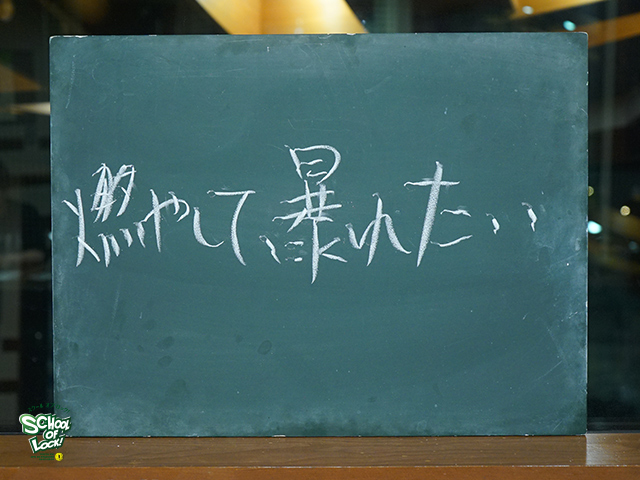 燃やして暴れたい
SCHOOL
OF
LOCK!